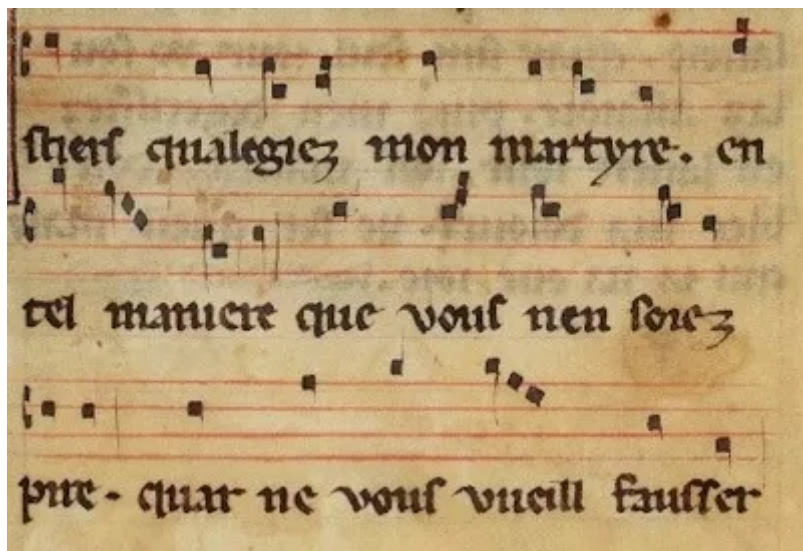 stiers qualegiez mon martyre. en
tel maniere que vous nen soiez
pire. quar ne vous vueill fausser